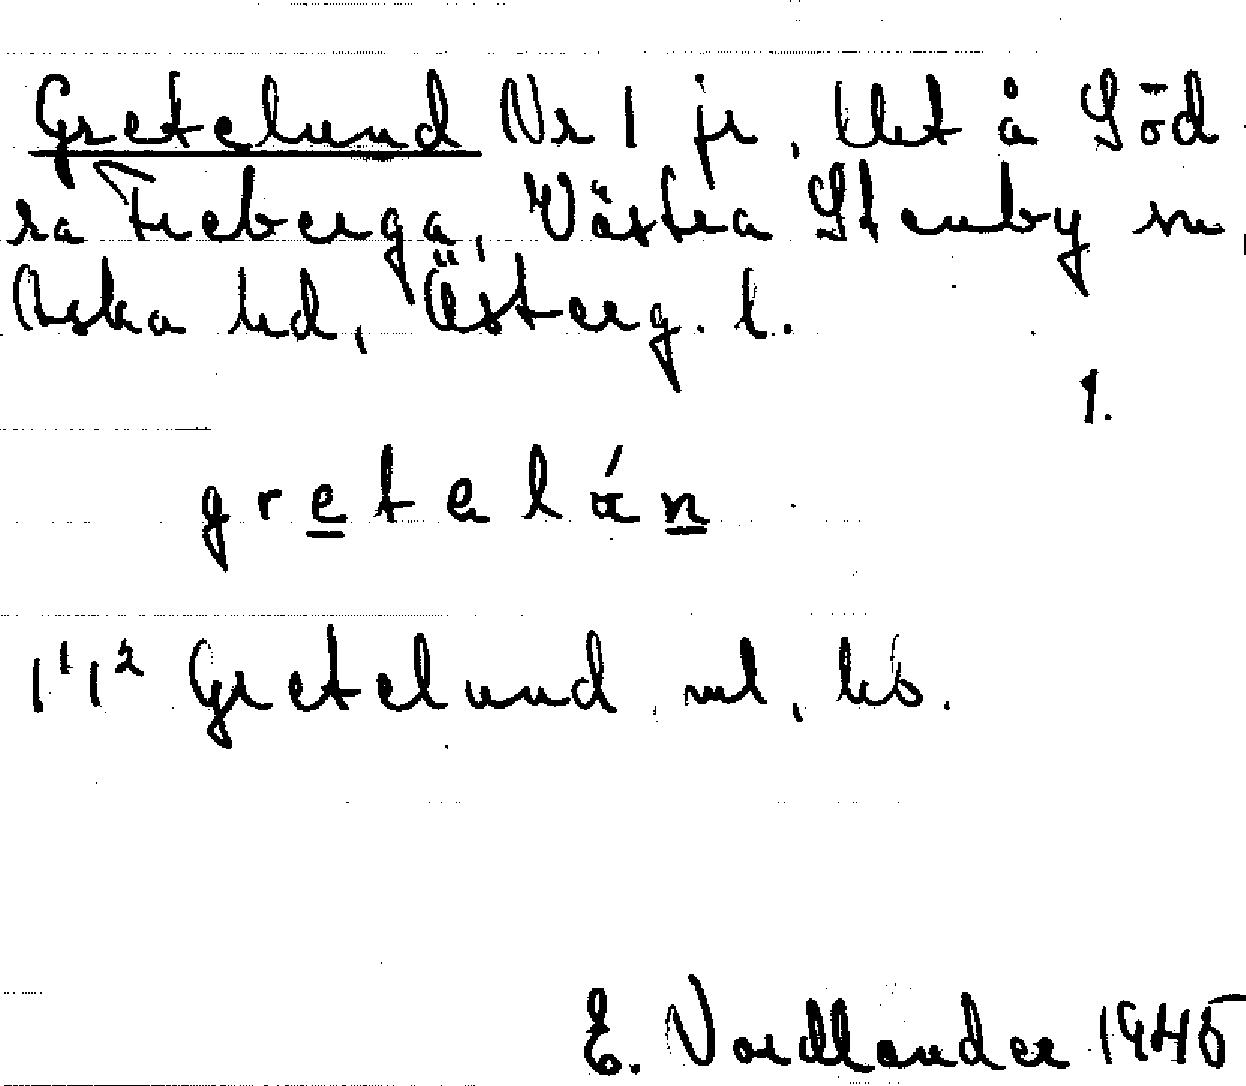 Gretelund Nr 1 jr, Utt å Söd
ra Freberga, Västra Stenby sn,
Aska hd, Österg. l.
1.
gretelán
1¹1² Gretelund ml, kb.
E. Nordlander 1945